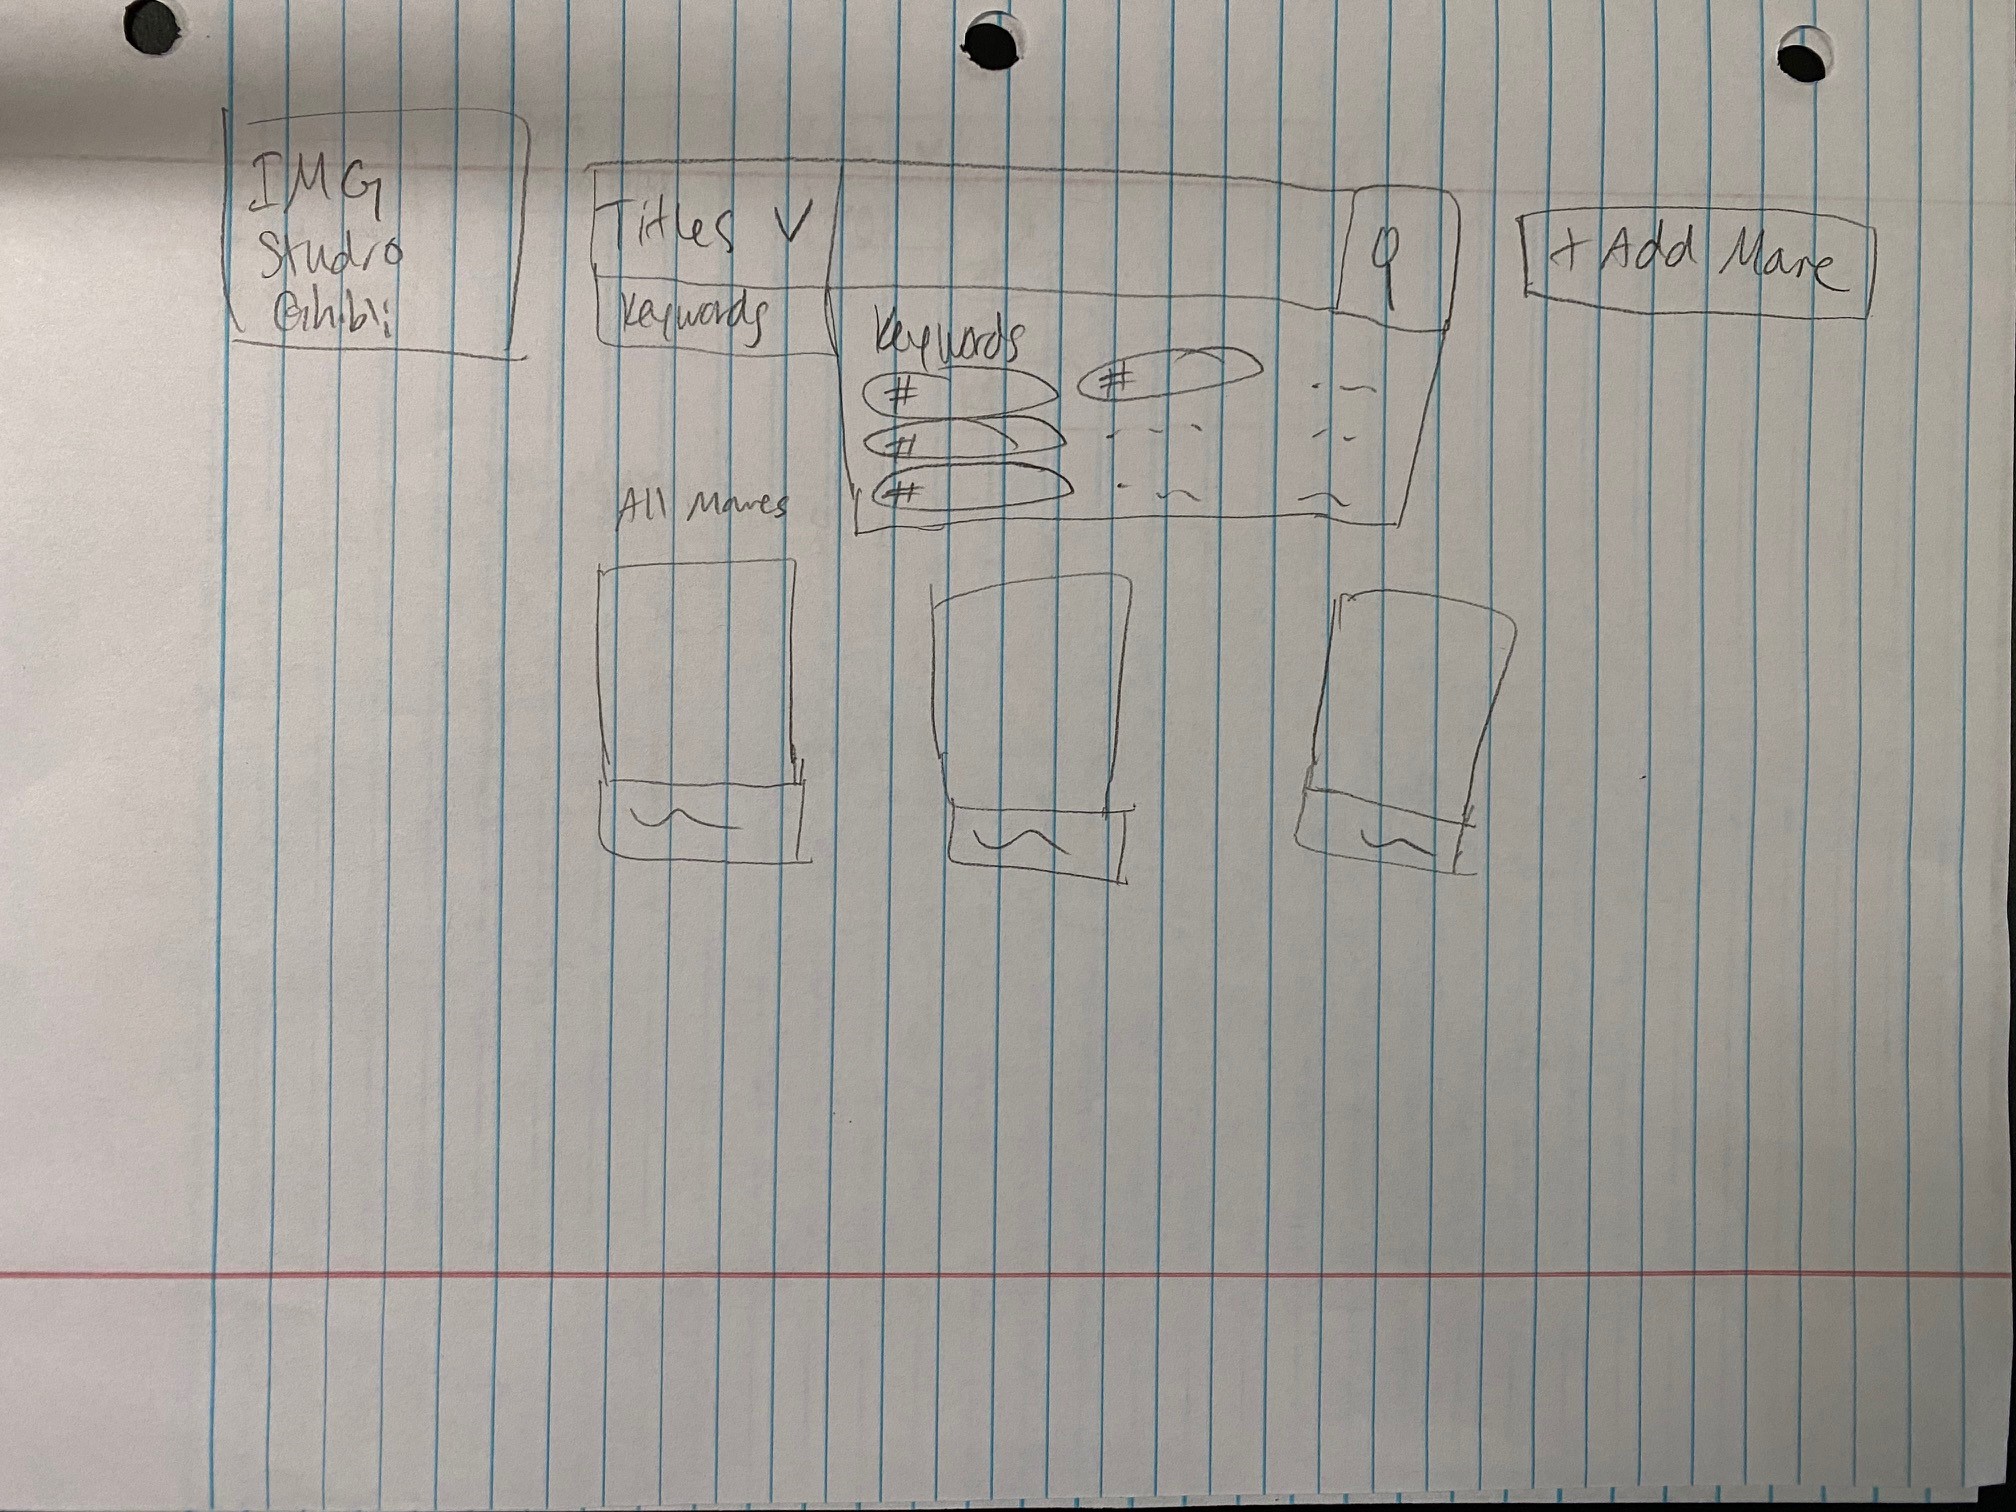 IMG
Studio
Ghibli
Titles V
Keywords
+ Add Movie
Keywords
#
#
#
#
All Movies